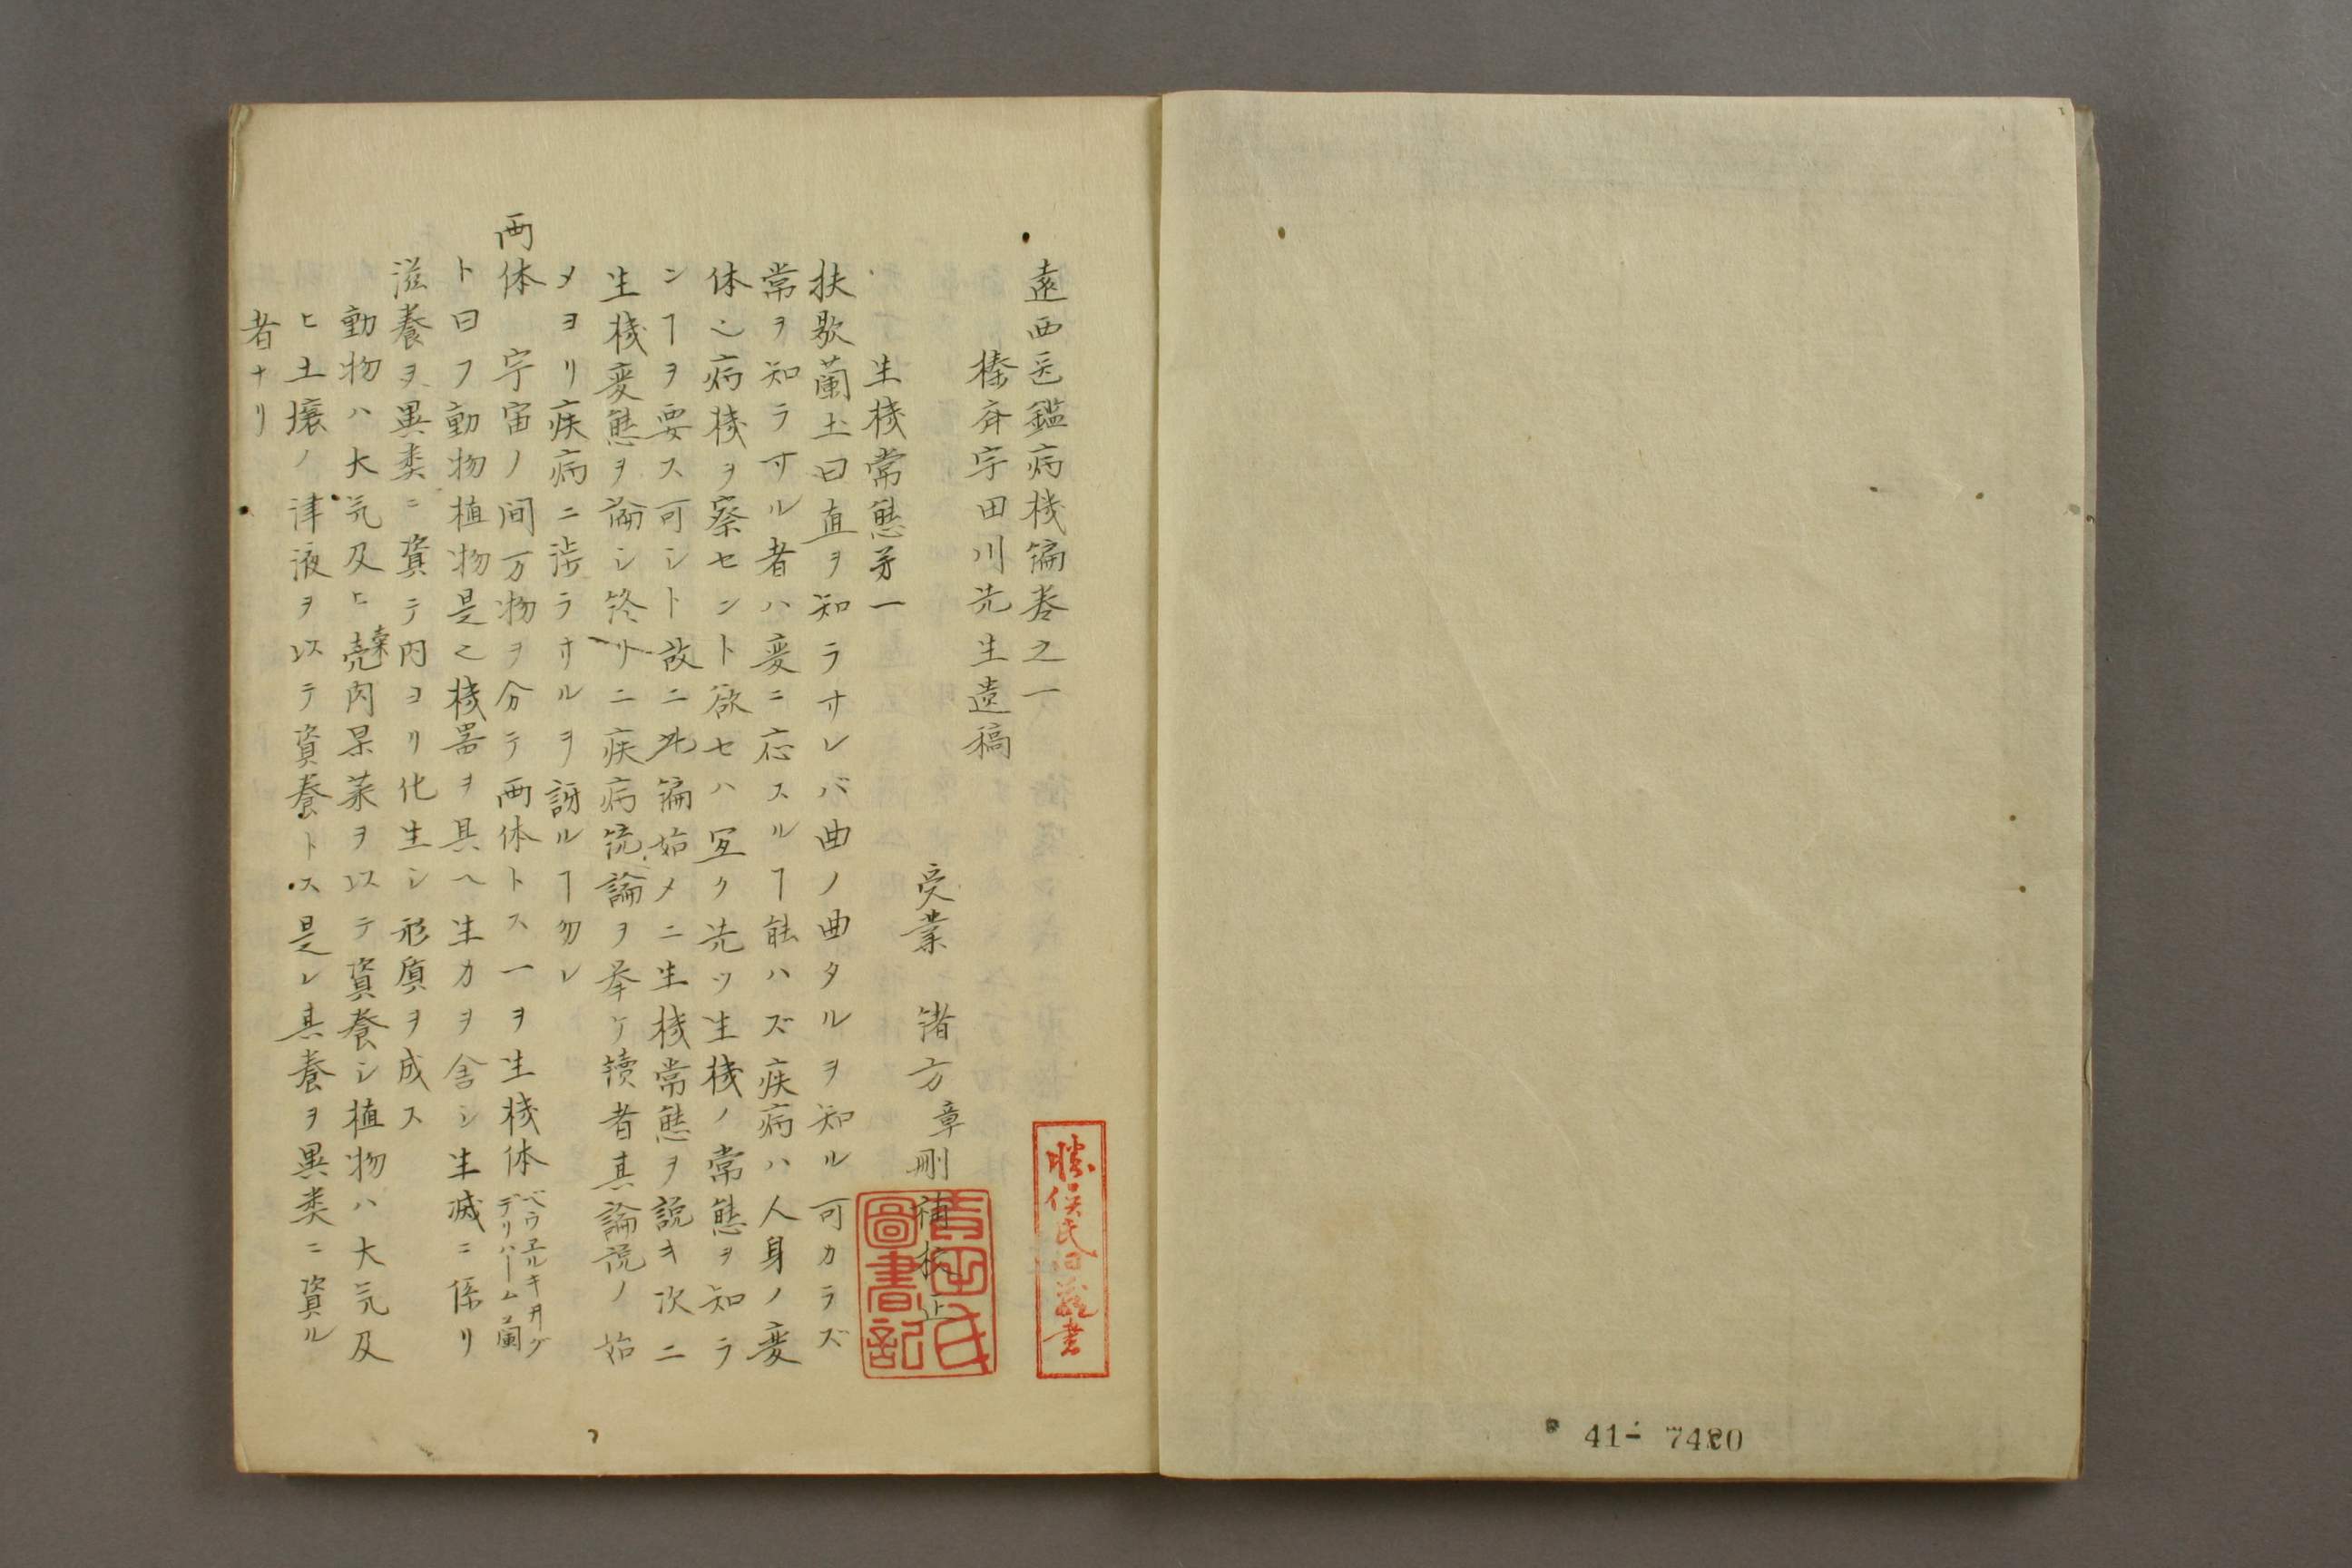 遠西医鑑病機編巻之一
榛斉宇田川先生遺稿
受業 緒方章剛補校正
生機常態第一
扶歇蘭土曰直ヲ知ラサレバ曲ノ曲タルヲ知ル可カラズ
常ヲ知ラサル者ハ変ニ応スルヿ能ハズ疾病ハ人身ノ変
体也病機ヲ察セント欲セハ宜ク先ツ生機ノ常態ヲ知ラ
ンヿヲ要ス可シト故ニ此編始メニ生機常態ヲ説キ次ニ
生機変態ヲ論シ終リニ疾病総論ヲ挙ケ読者其論説ノ始
メヨリ疾病ニ渉ラサルヲ訝ルヿ勿レ
両体 宇宙ノ間万物ヲ分テ両体トス一ヲ生機体ベウヱルキ井グデリハーム蘭
ト曰フ動物植物是也機器ヲ具ヘ生力ヲ含シ生滅ニ係リ
滋養ヲ異類ニ資テ内ヨリ化生シ形質ヲ成ス
動物ハ大気及ヒ殻肉果菜ヲ以テ資養シ植物ハ大気及
ヒ土壌ノ津液ヲ以テ資養トス是レ其養ヲ異類ニ資ル
者ナリ
吉田氏圖書記
勝俣氏旧蔵書
41-7480